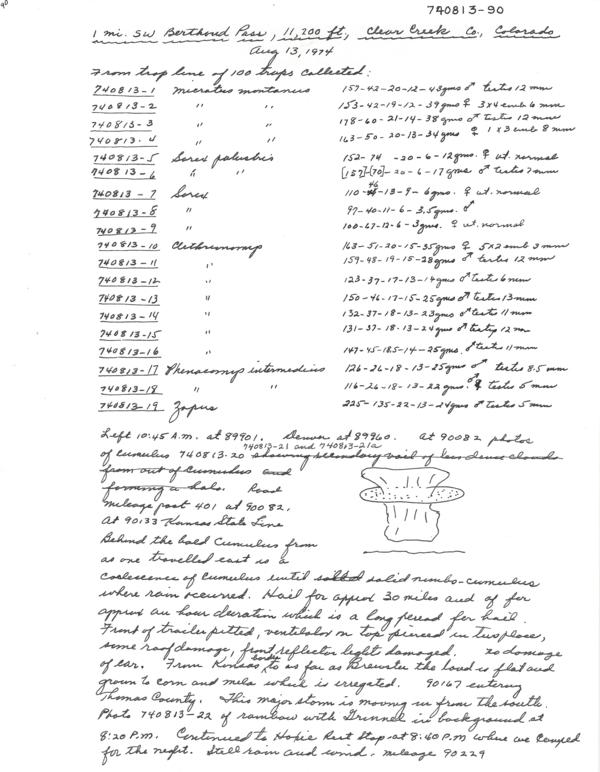 740813-90
1 mi. SW Berthoud Pass, 11,200 ft, Clear Creek Co, Colorado
Aug 13, 1974
From trap line of 100 traps collected:
740813-1 Microtus montanus 157-42-20-12-43gms ♂ testes 12 mm
740813-2 " " 153-42-19-12-39gms ♀ 3x4 emb 6 mm
740813-3 " " 178-60-21-14-38gms ♂ testes 12 mm
740813-4 " " 163-50-20-13-34gms ♀ 1x3 emb 8 mm
740813-5 Sorex palustris 152-74-20-6-12gms. ♀ ut. normal
740813-6 " " [157]-[70]-20-6-17gms ♂ testes 7mm
740813-7 Sorex 110-46-13-9-6gms. ♀ ut. normal
740813-8 " 97-40-11-6-3.5gms. ♂
740813-9 " 100-67-12-6-3gms. ♀ ut. normal
740813-10 Clethrionomys 163-51-20-15-35gms ♀ 5x2 emb 3 mm
740813-11 " 159-48-19-15-28gms ♂ testes 12 mm
740813-12 " 123-37-17-13-14gms ♂ testes 6mm
740813-13 " 150-46-17-15-25gms ♂ testes 13mm
740813-14 " 132-37-18-13-23gms ♂ testes 11 mm
740813-15 131-37-18-13-24gms ♂ testes 12 mm
740813-16 " 147-45-18.5-14-25gms. ♂ testes 11mm
740813-17 Phenacomys intermedius 126-26-18-13-25gms ♂ testes 8.5 mm
740813-18 " " 116-26-18-13-22gms. ♂ testes 5 mm
740813-19 Zapus 225-135-22-13-24gms ♂ testes 5 mm
Left 10:45 A.M. at 89901. Denver at 89960. at 90082 photos
740813-21 and 740813-21a
of cumulus 740813-20 showing secondary vail of less dense clouds
from out of cumulus and
forming a halo. Road
mileage post 401 at 90082.
At 90133 Kansas State Line
Behind the bald Cumulus from
as one travelled east is a
coalescence of cumulus until solid solid nimbo-cumulus
where rain occurred. Hail for approx 30 miles and of for
approx an hour duration which is a long peread for hail.
Front of trailer pitted, ventilator on top pierced in two place,
some roof damage, front reflector light damaged. no damage
of car. From Kansas border to as far as Brewster the land is flat and
grown to corn and milo which is irregated. 90167 entering
Thomas County. This major storm is moving in from the south.
Photo 740813-22 of rainbow with Grinnel in background at
8:20 P.M. Continued to Hoxie Rest Stop at 8:40 P.M where we camped
for the night. Still rain and wind. mileage 90229